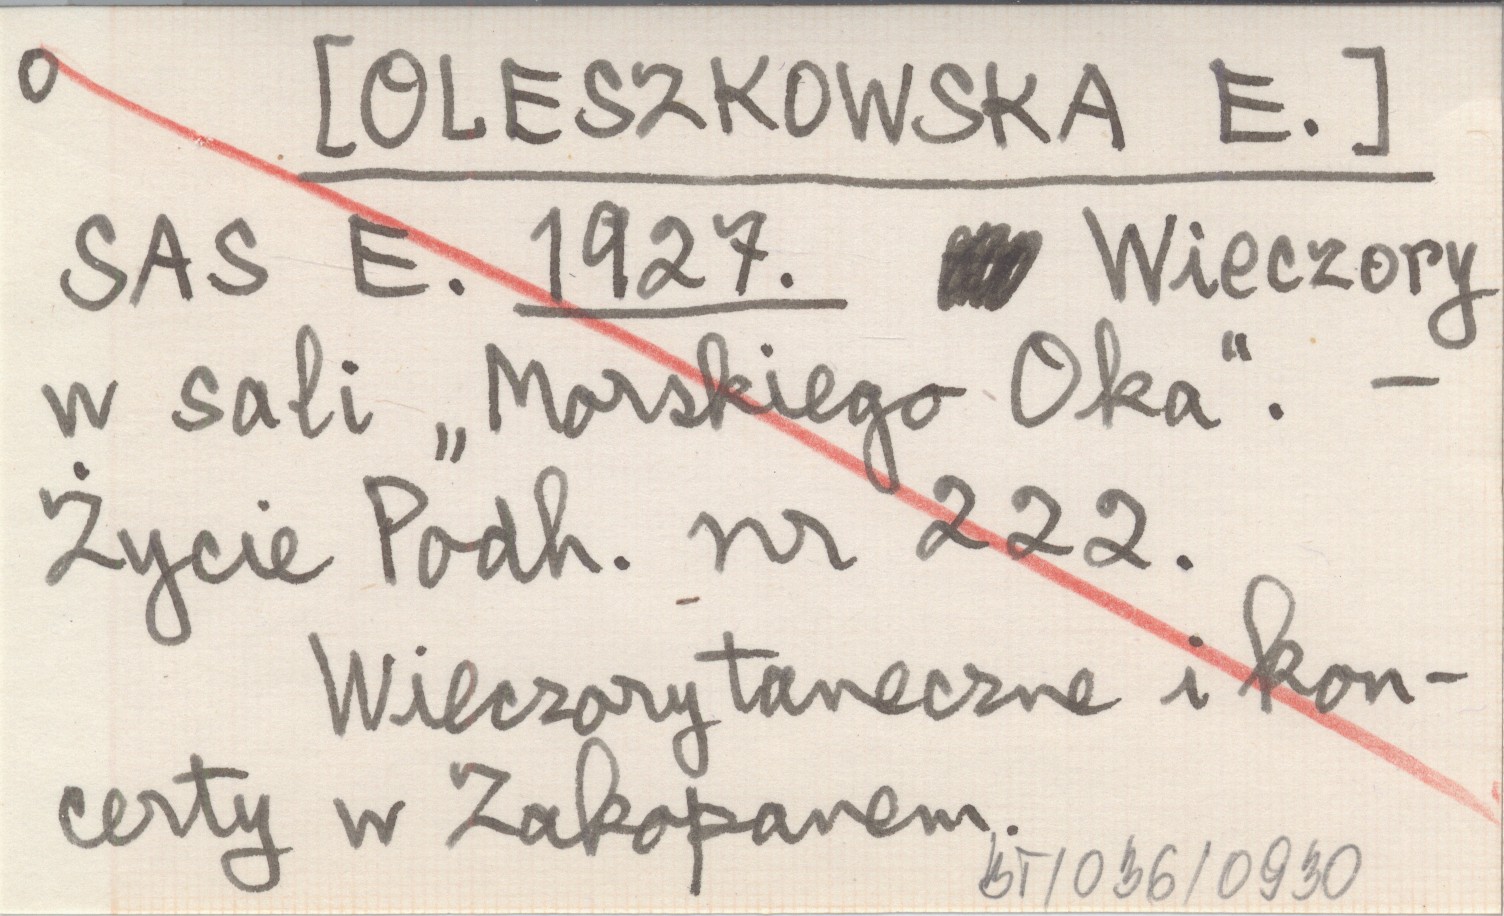 o [OLESZKOWSKA E.]
SAS E. 1927. Wieczory
w sali „Morskiego Oka“. –
Życie Podh. nr 222.
Wieczory taneczne i kon-
certy w Zakopanem.
BT/036/0930